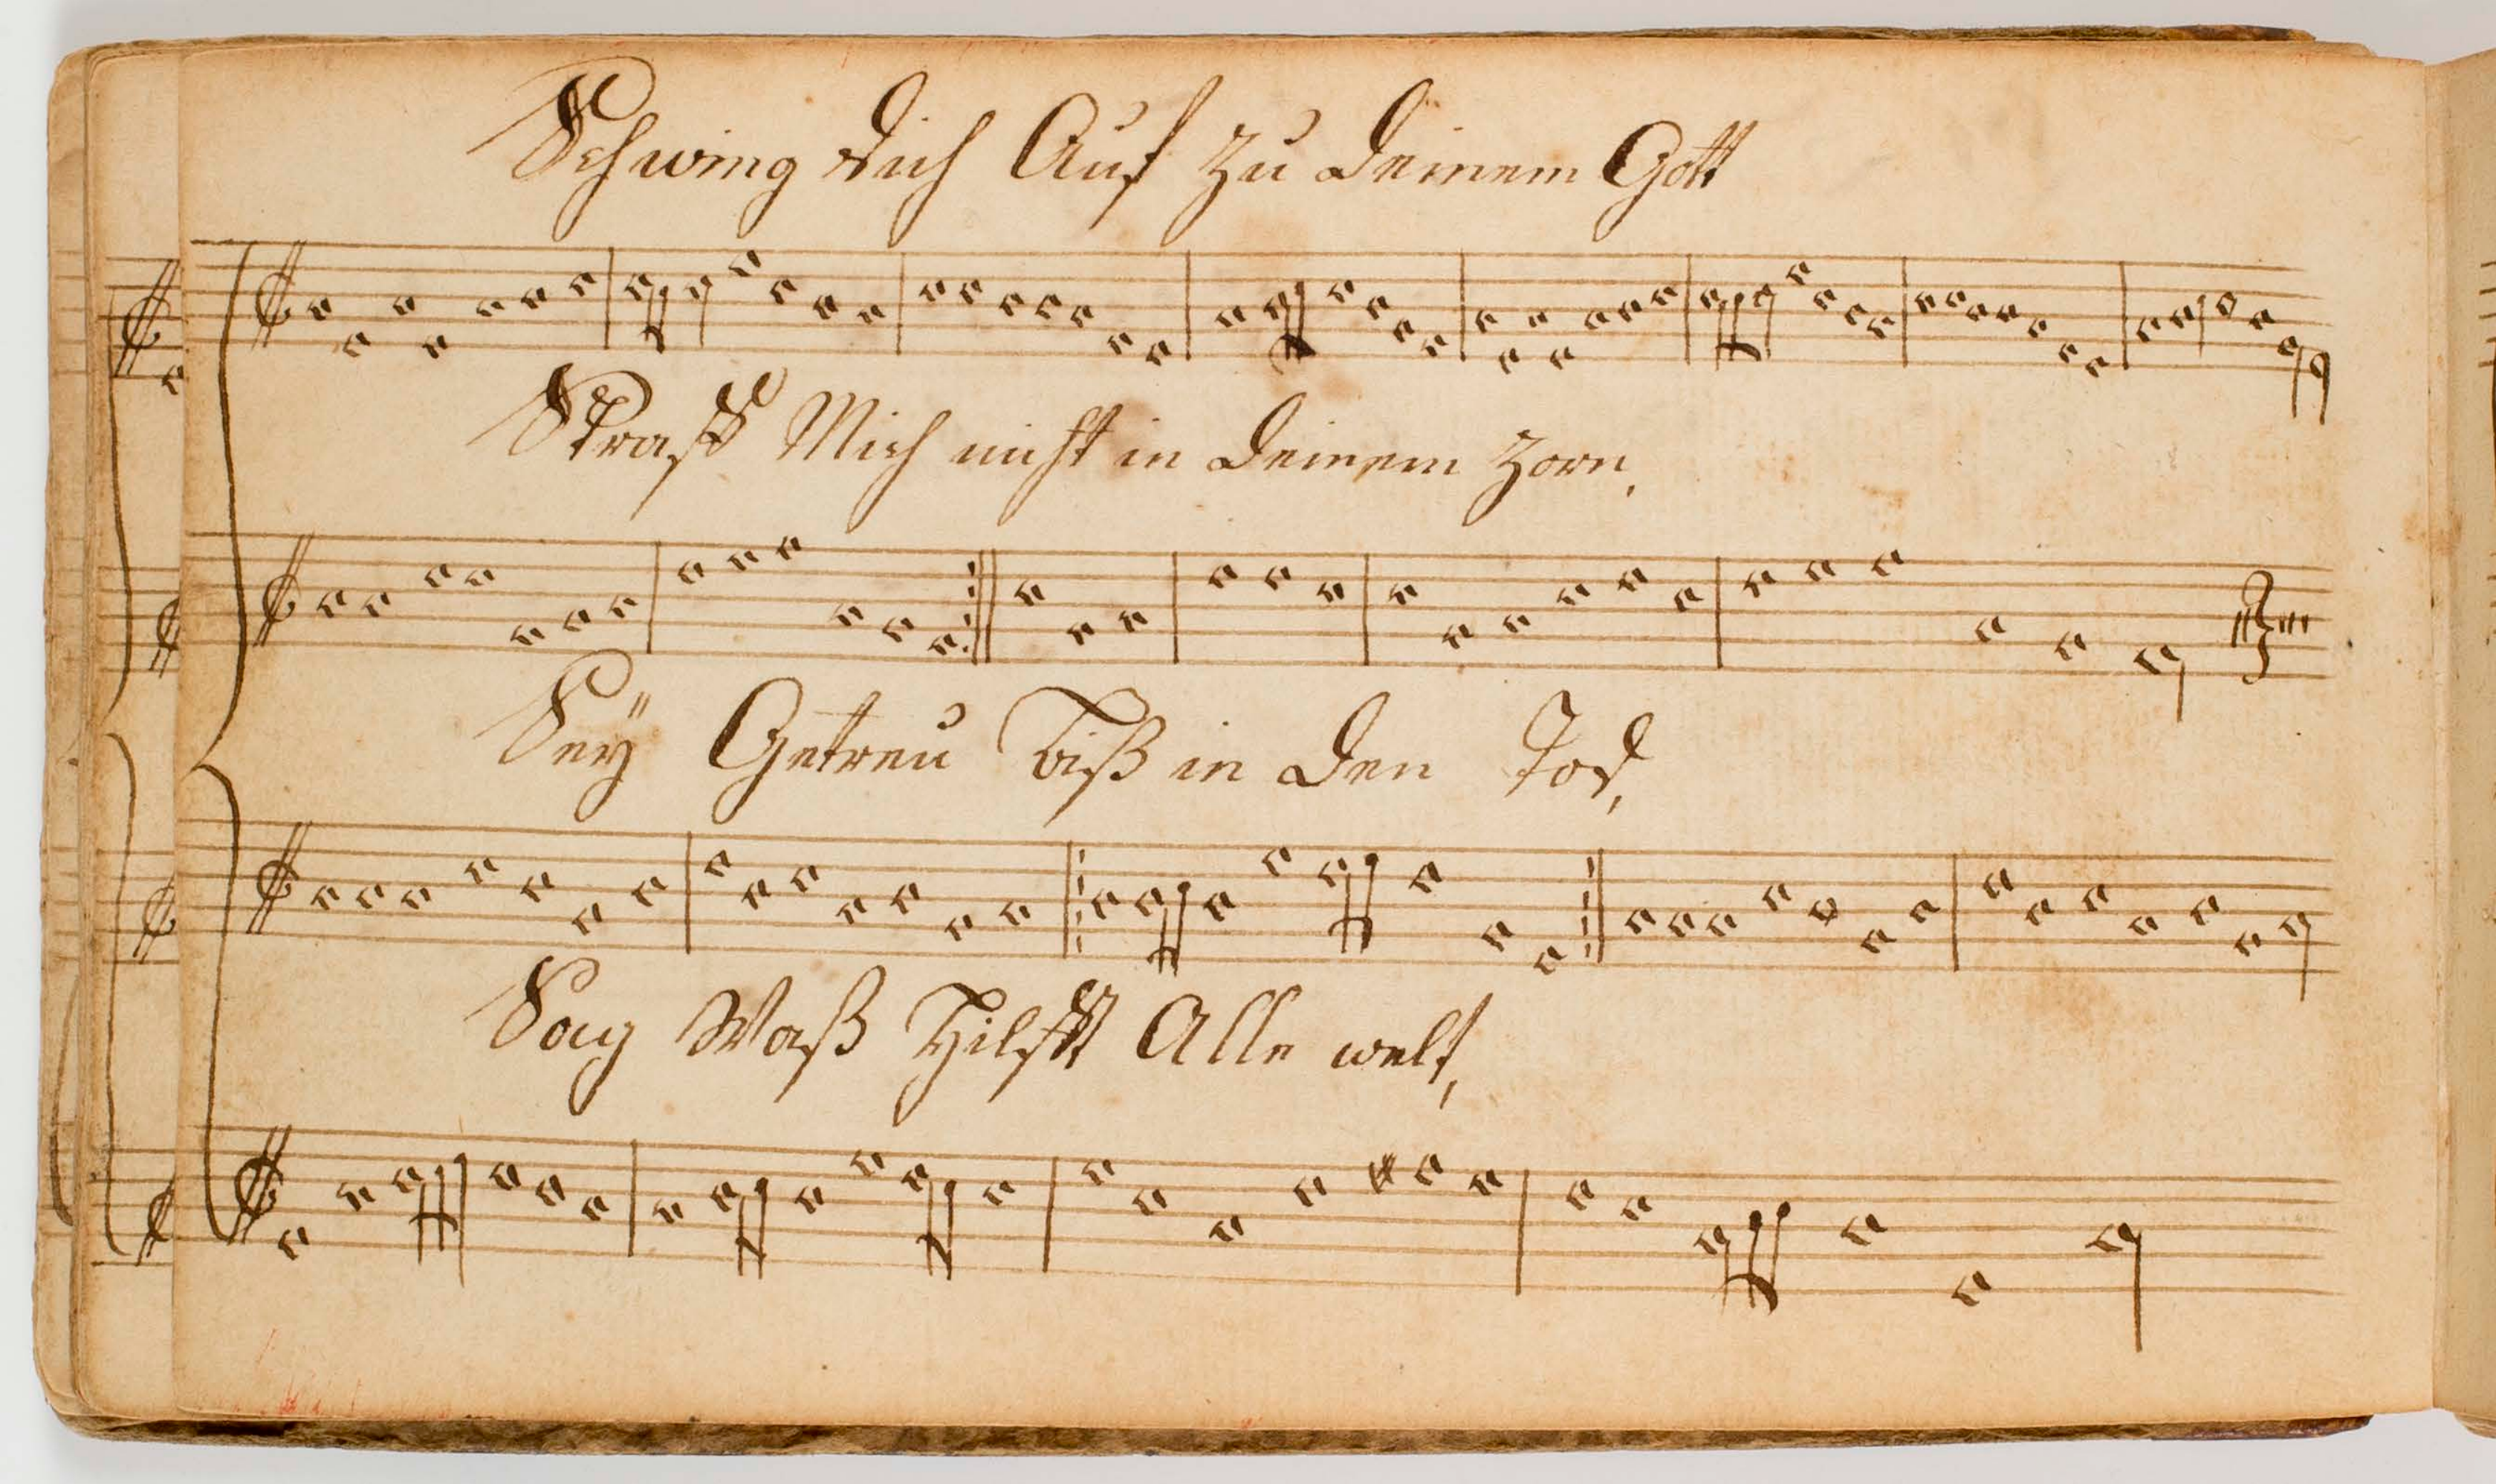 Schwing dich Auf zu deinem Gott
Straff Mich nicht in deinem zorn,
Seÿ Getreu biß in den Tod,
Sag Waß Hilfft Alle welt,